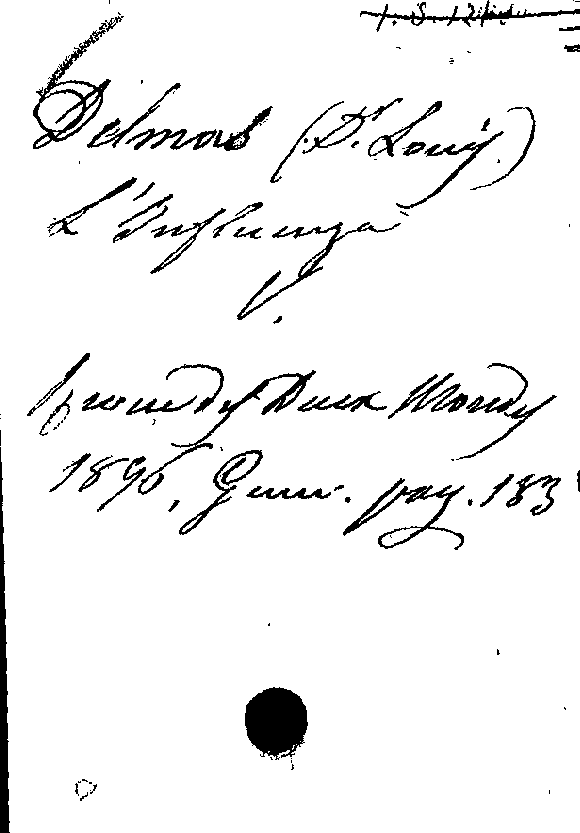 Delmas (Dr. Louis.)
L'Influenza
V.
Revue des Deux Mondes
1896, Genn. pag. 183